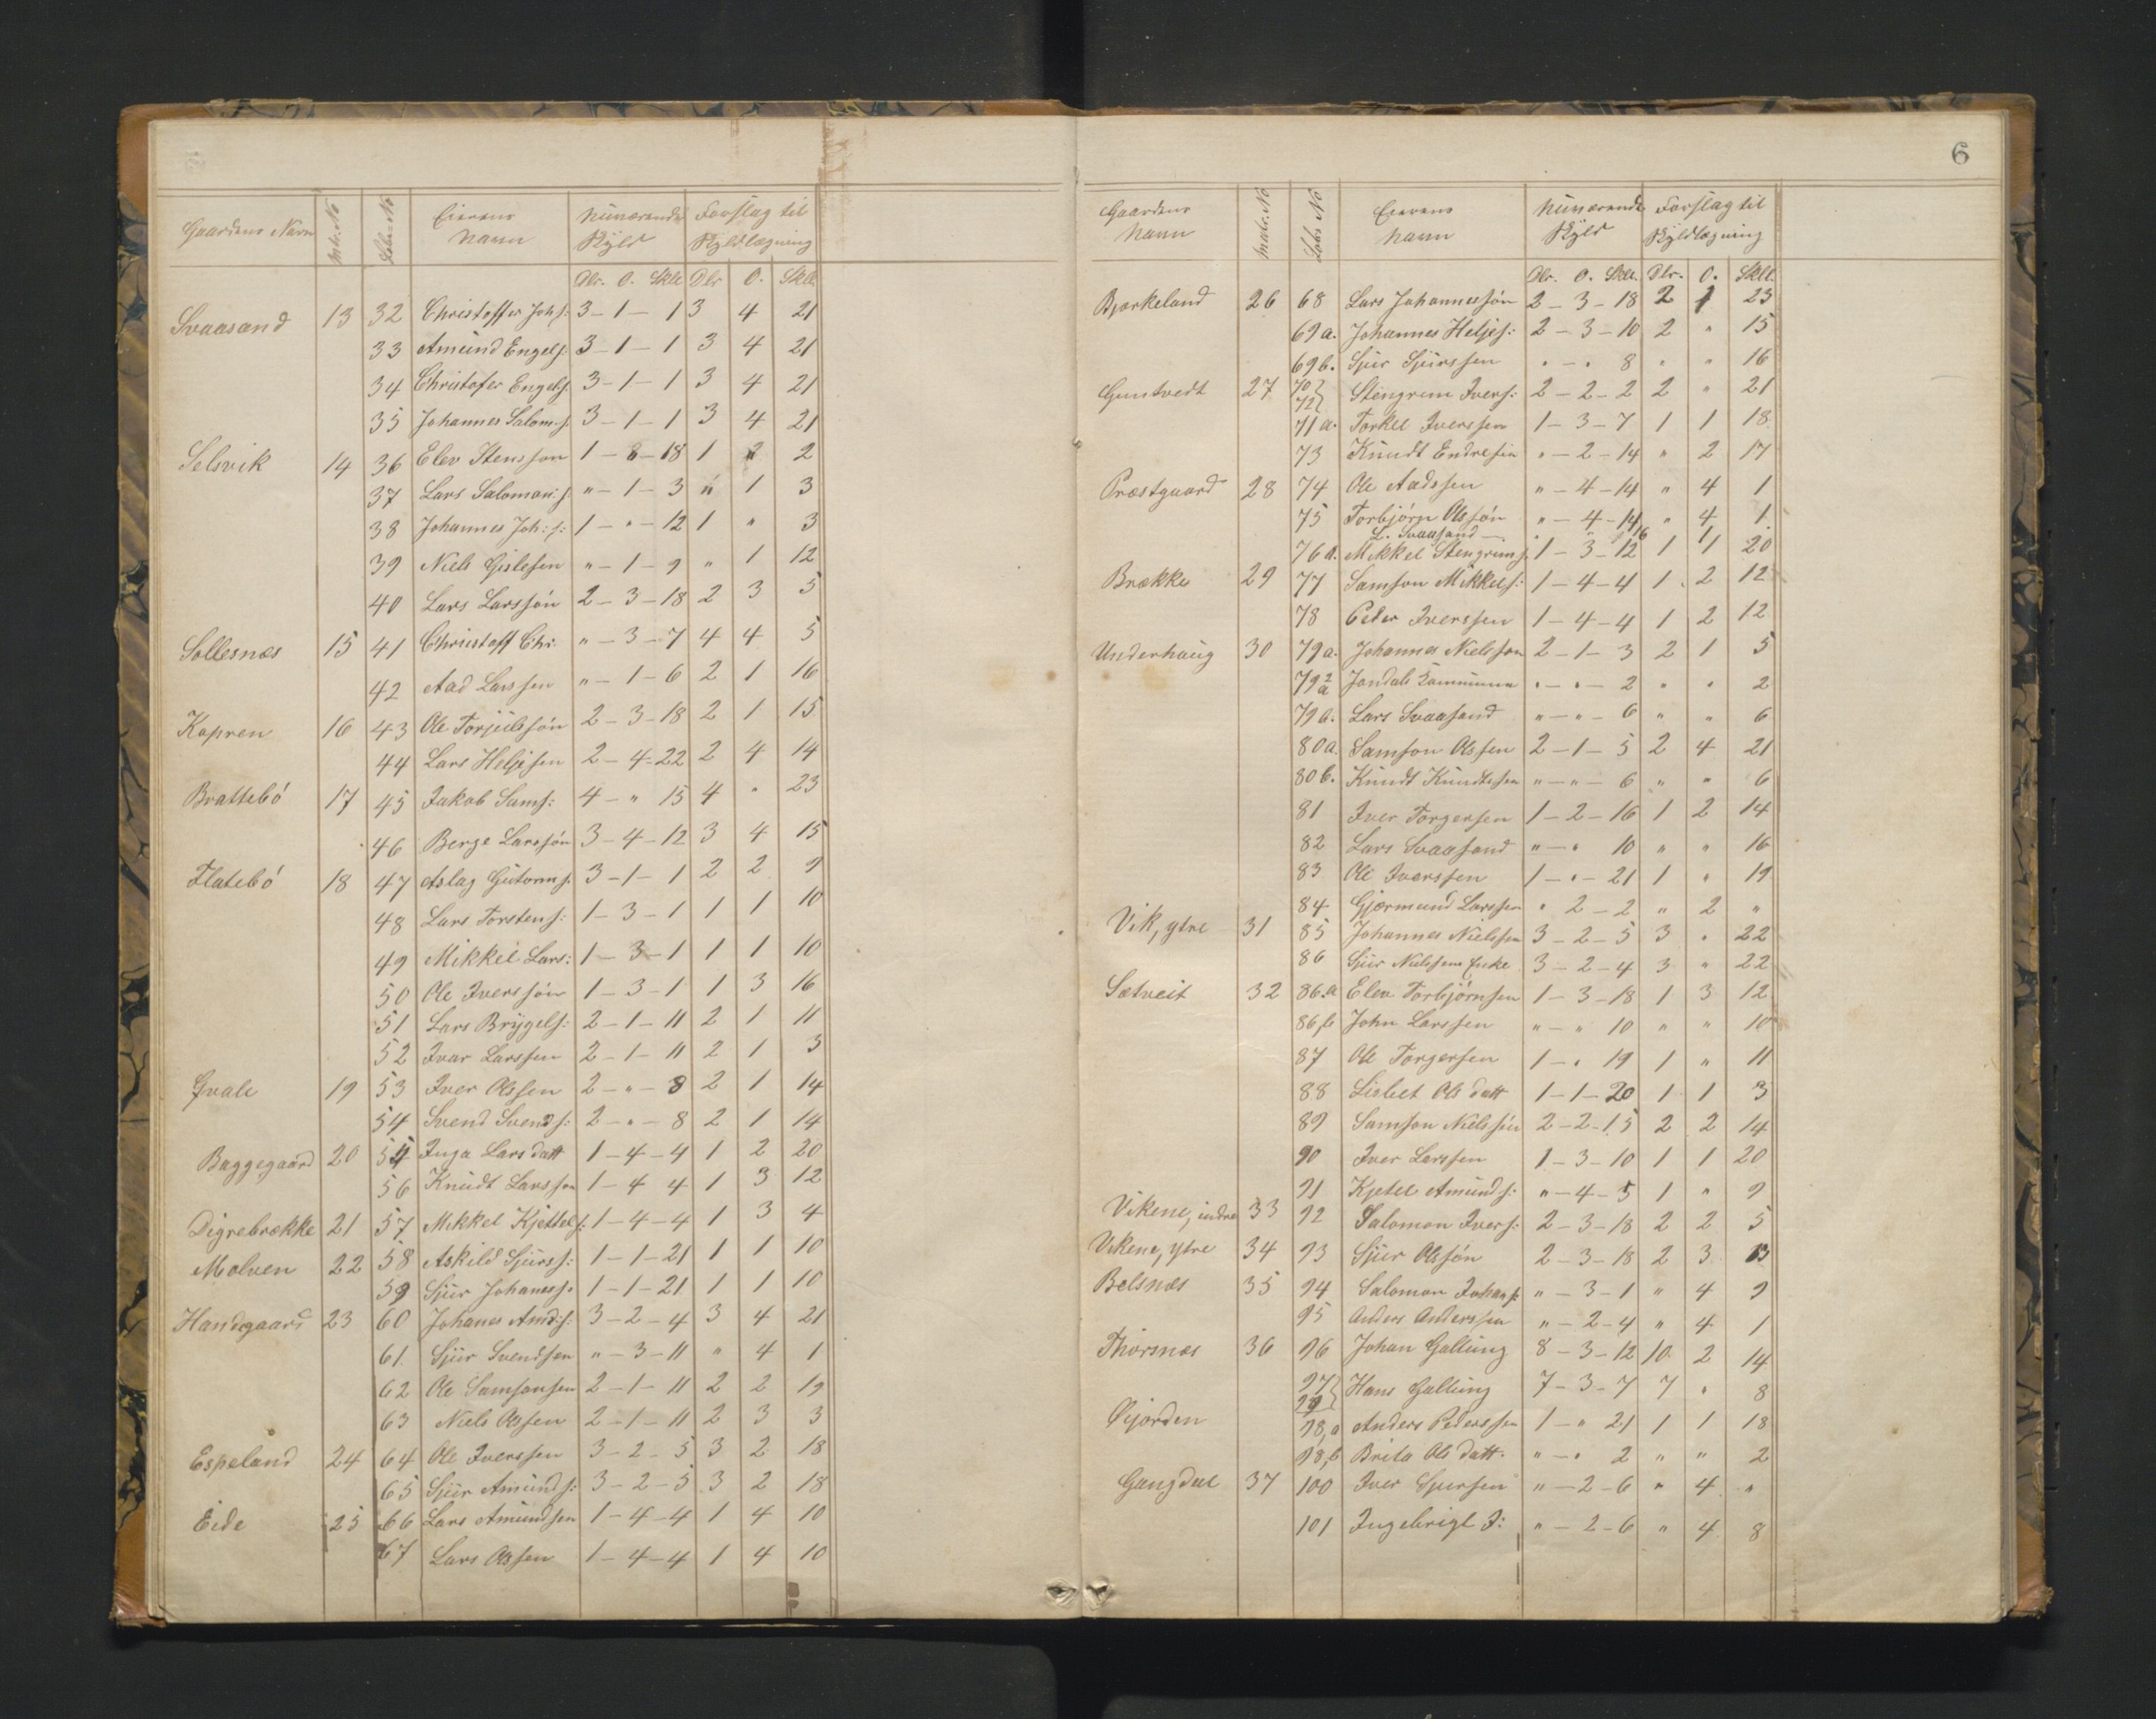 Gaardens Navn | Mtr. No | Løbe-No | Eierens Navn | Nuværende Skyld | Forslag til Skyldlægning
Dlr. O. Skll. | Dlr O. Skll.
Svaasand 13 32 Christoffer Joh s: 3 - 1 - 1 3 4 21
33 Amund Engels: 3 - 1 - 1 3 4 21
34 Christofer Engels. 3 - 1 - 1 3 4 21
35 Johannes Salom. s. 3 - 1 - 1 3 4 21
Selsvik 14 36 Elev Stensson 1 - 3 - 18 1 2
37 Lars Salomon: s. " - 1 - 3 " 1 3
38 Johannes Joh: s: 1 - " - 12 1 " 3
39 Niels Gislesen " - 1 - 9 " 1 12
40 Lars Larssøn 2 - 3 - 18 2 3 5
Sollesnæs 15 41 Christoff Chr: " - 3 - 7 4 4 5
42 Aad Larssen " - 1 - 6 2 1 16
Kopren 16 43 Ole Torjulssøn 2 - 3 - 18 2 1 15
44 Lars Heljesen 2 - 4 - 22 2 4 14
Brattebø 17 45 Jakob Sams: 4 - " 15 4 " 23
46 Berge Larssøn 3 - 4 - 12 3 4 15
Flatebø 18 47 Aslag Gutorms. 3 - 1 - 1 2 2 9
48 Lars Torstens: 1 - 3 - 1 1 1 10
49 Mikkel Lars: 1 - 3 - 1 1 1 10
50 Ole Iverssøn 1 - 3 - 1 1 3 16
51 Lars Brygels: 2 - 1 - 11 2 1 11
52 Ivar Larssen 2 - 1 - 11 2 1 3
Qvale 19 53 Iver Olssen 2 - " - 8 2 1 14
54 Svend Svends: 2 - " - 8 2 1 14
Baggegaard 20 55 Inga Larsdatt 1 - 4 - 4 1 2 20
56 Knudt Larssen 1 - 4 4 1 3 12
Digrebrække 21 57 Mikkel Kjettels. 1 - 4 - 4 1 3 4
Molven 22 58 Askild Sjurs s: 1 - 1 - 21 1 1 10
59 Sjur Johaness. 1 - 1 - 21 1 1 10
Handegaard 23 60 Johanes Amd: s: 3 - 2 - 4 3 4 21
61. Sjur Svendsen " - 3 - 11 " 4 1
62 Ole Samsonsen 2 - 1 - 11 2 2 19
63 Niels Olssen 2 - 1 - 11 2 3 3
Espeland 24 64 Ole Iverssen 3 - 2 - 5 3 2 18
65 Sjur Amunds: 3 - 2 - 5 3 2 18
Eide 25 66 Lars Amundsen 1 - 4 - 4 1 4 10
67 Lars Olssen 1 - 4 - 4 1 4 10
6
Gaardens Navn | Matr. No | Løbe No | Eierens Navn | Nuværende Skyld | Forslag til Skyldlægning
Dlr. O. Skll. | Dlr. O. Skll.
Bjørkeland 26 68 Lars Johannessøn 2 - 3 - 18 2 1 23
69 a. Johannes Heljes: 2 - 3 - 10 2 " 15
69 b. Sjur Sjurssen " - " 8 " " 16
Guntvedt 27 70 72 } Stengrim Ivers: 2 - 2 - 2 2 " 21
71 a. Torkel Iverssen 1 - 3 - 7 1 1 18
73 Knudt Endresen " - 2 - 14 " 2 17
Præstgaard 28 74 Ole Aadssen " - 4 - 14 " 4 1
75 Torbjørn Olssøn " - 4 - 14 " 4 1
L. Svaasand 16
76 a. Mikkel Stengrims. 1 - 3 - 12 1 1 20
Brække 29 77 Samson Mikkels: 1 - 4 - 4 1 2 12
78 Peder Iverssen 1 - 4 - 4 1 2 12
Underhaug 30 79 a. Johannes Nielsson 2 - 1 - 3 2 1 5
79 2 a Jondals Kommune " - " - 2 " " 2
79 b. Lars Svaasand " - " - 6 " " 6
80 a. Samson Olssen 2 - 1 - 5 2 4 21
80 b. Knudt Knudtssen " - " - 6 " " 6
81 Iver Torgersen 1 - 2 - 16 1 2 14
82 Lars Svaasand " - " 10 " " 16
83 Ole Iverssen 1 - " - 21 1 " 19
84 Gjermund Larssen " 2 - 2 " 2 "
Vik, ytre 31 85 Johannes Nielssen 3 - 2 - 5 3 " 22
86 Sjur Nielssens Enke 3 - 2 - 4 3 " 22
Sætveit 32 86. a Elev Torbjørnsen 1 - 3 - 18 1 3 12
86, b John Larssen " - " 10 " " 10
87 Ole Torgersen 1 - " 19 1 " 11
88 Lisbet Olsdatt 1 - 1 - 20 1 1 3
89 Samson Nielssøn 2 - 2 - 15 2 2 14
90 Iver Larssen 1 - 3 - 10 1 1 20
91 Kjetel Amunds: " - 4 - 5 1 " 9
Vikene, indre 33 92 Salomon Ivers: 2 - 3 - 18 2 2 5
Vikene, ytre 34 93 Sjur Olssøn 2 - 3 - 18 2 3 13
Belsnæs 35 94 Salomon Johans. " - 3 - 1 " 4 9
95 Anders Anderssen " - 2 - 4 " 4 1
Thorsnæs 36 96 Johan Galtung 8 - 3 - 12 10 2 14
97 99 } Hans Galtung 7 - 3 - 7 7 " 8
Øijorden 98, a Anders Pederssen 1 - " 21 1 1 18
98, b Brita Olsdatt. " - " 2 " " 2
Gangdal 37 100 Iver Sjursen " - 2 - 6 " 4 "
101 Ingebrigt I: " - 2 - 6 " 4 8